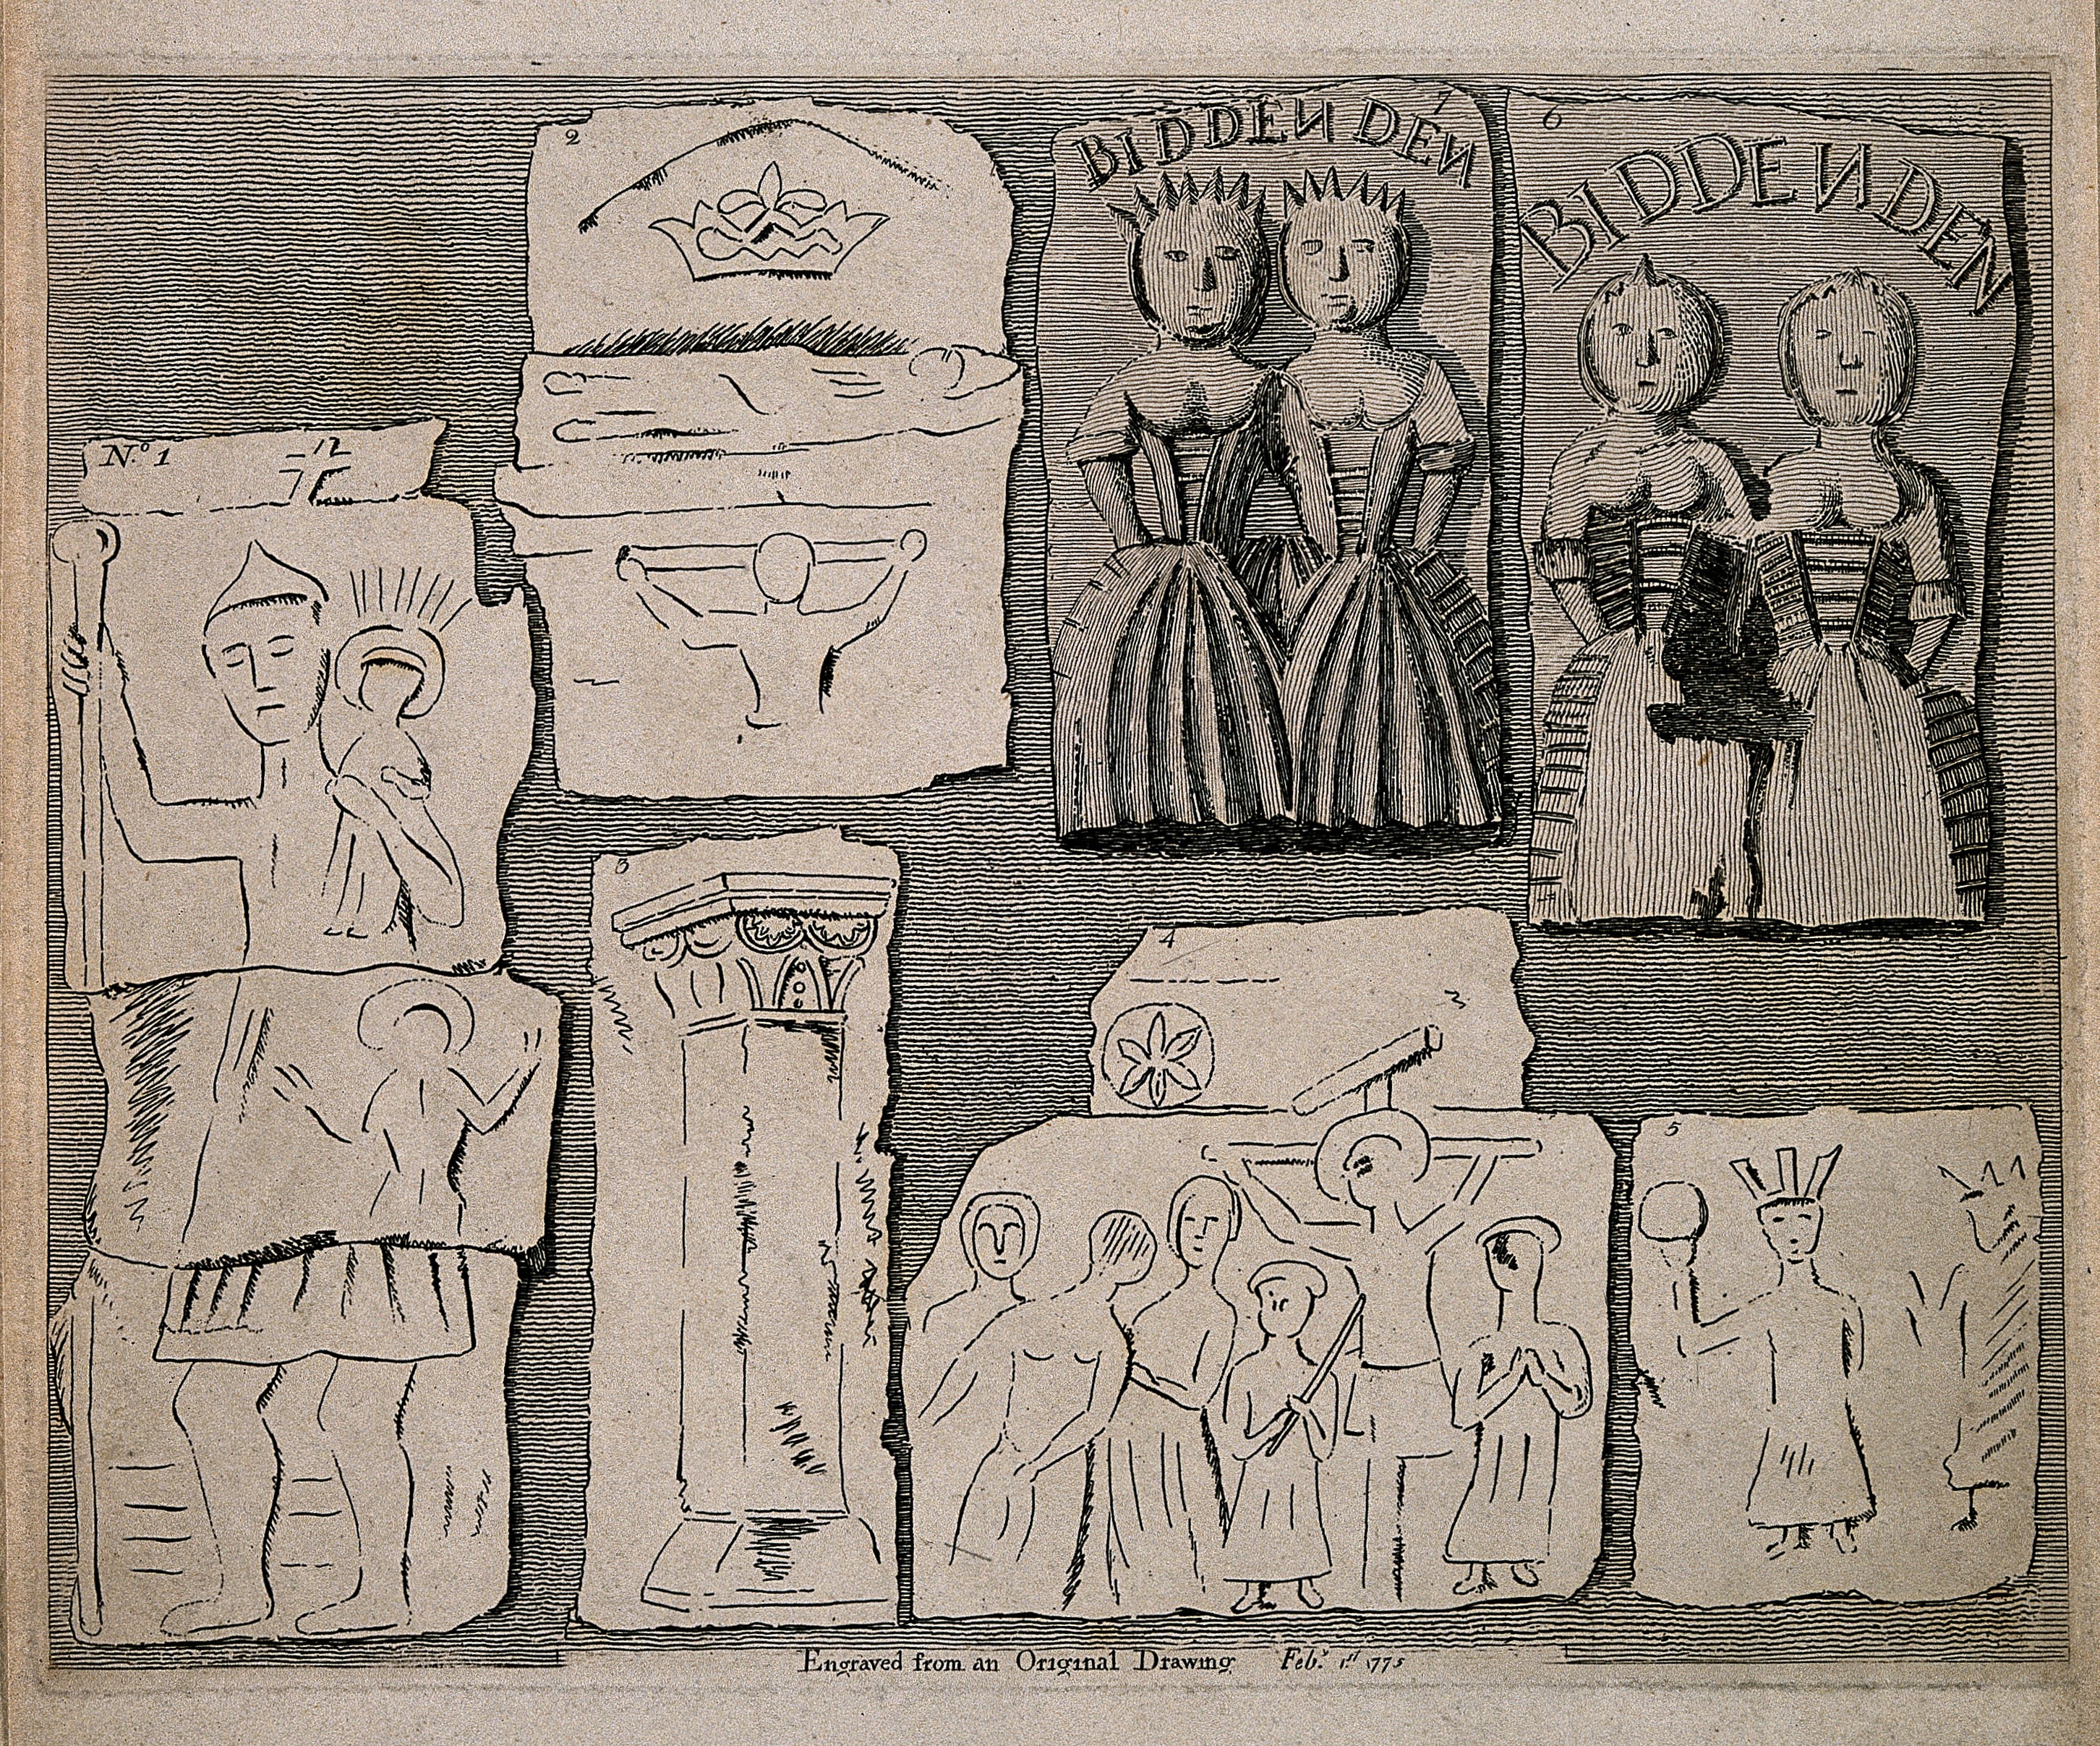 2
BIDDEN DEN
6
BIDDENDEN
N.º 1
12
3
4
5
Engraved from an Original Drawing Feb.y 1st 1775